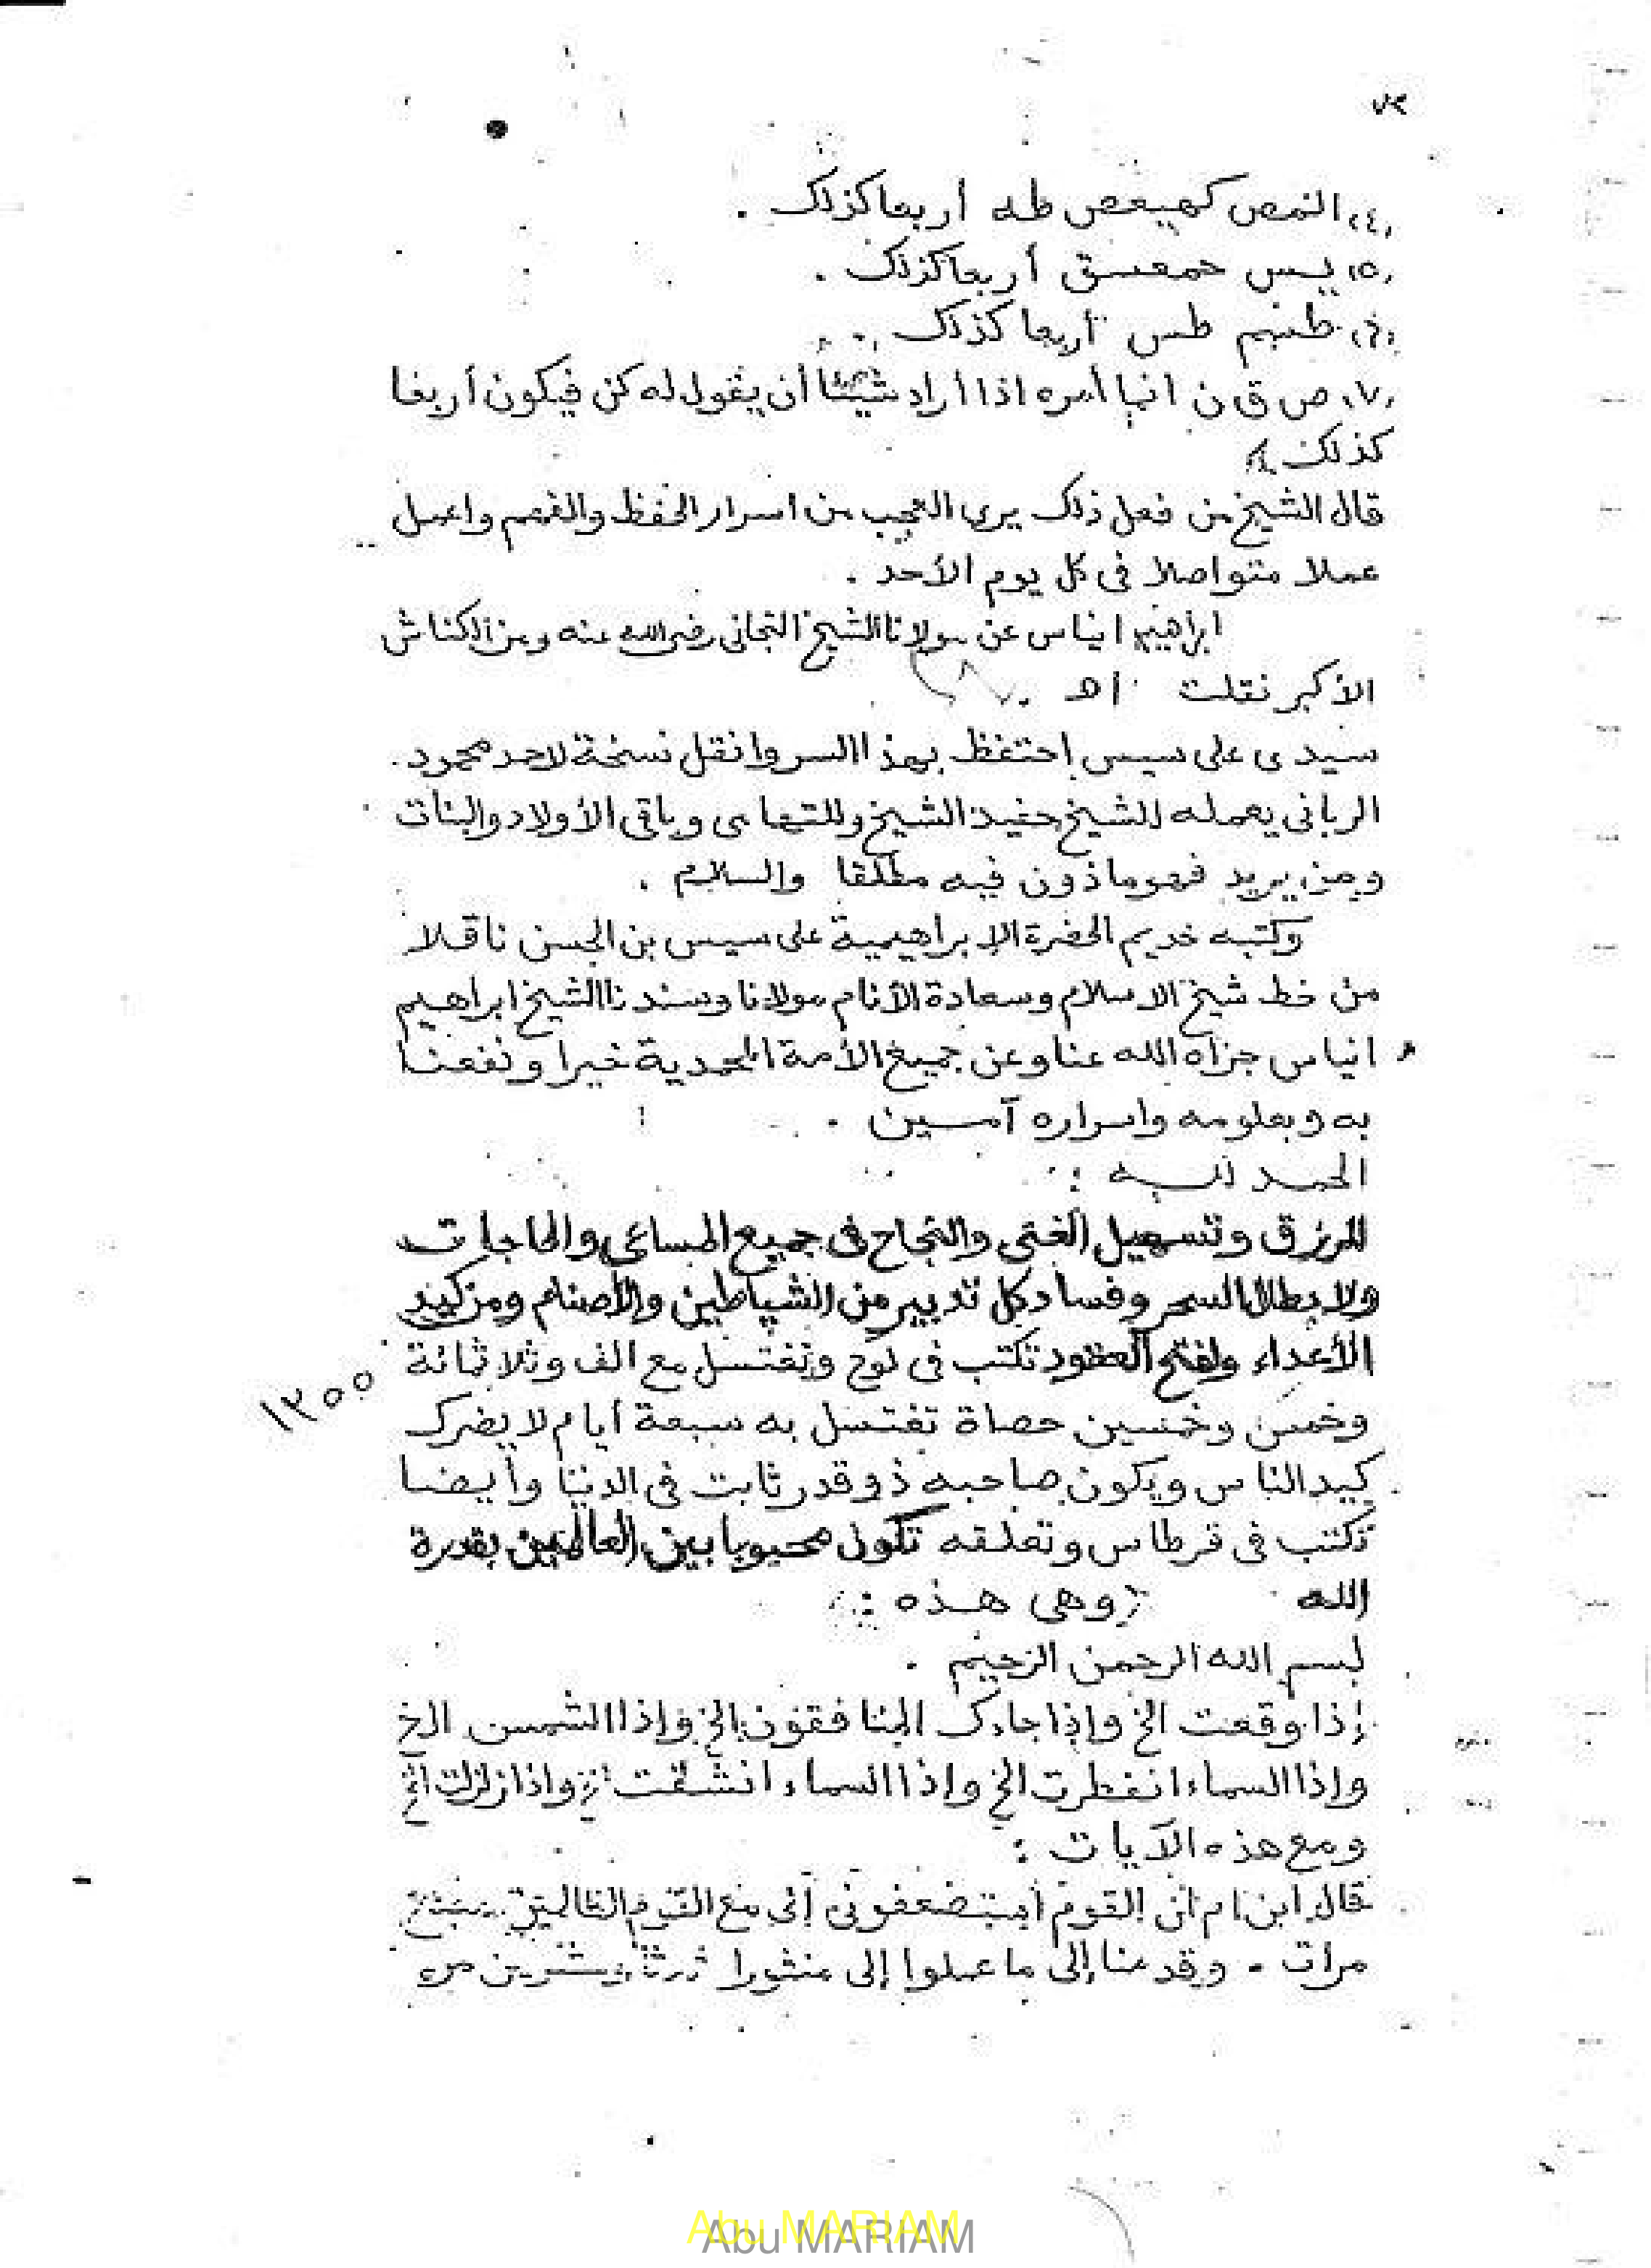 ٧٢
(٤) المص كهيعص طه أربعا كذلك .
(٥) يس حمعسق أربعا كذلك .
(٦) طسم طس أربعا كذلك .
(٧) ص ق ن انما أمره اذا أراد شيئا أن يقول له كن فيكون أربعا
كذلك
قال الشيخ من فعل ذلك يرى العجب من اسرار الحفظ والفهم واعمل
عملا متواصلا فى كل يوم الأحد .
ابراهيم انياس عن مولانا الشيخ التجانى رضى الله عنه ومن الكناش
الأكبر نقلت اه .
سيدى على سيس احتفظ بهذا السر وانقل نسخة لاحمد محمود .
الربانى يعمله للشيخ حفيد الشيخ وللتهامى وباقى الأولاد والبنات
ومن يريد فهو ماذون فيه مطلقا والسلام .
وكتبه خديم الحضرة الابراهيمية على سيس بن الحسن ناقلا
من خط شيخ الاسلام وسعادة الأنام مولانا وسندنا الشيخ ابراهيم
انياس جزاه الله عنا وعن جميع الأمة المحمدية خيرا ونفعنا
به وبعلومه واسراره آمــين .
الحمد لله :
للرزق وتسهيل الغنى والنجاح فى جميع المساعى والحاجات
ولابطال السحر وفساد كل تدبير من الشياطين والأصنام ومن كيد
الأعداء ولفتح العقود تكتب فى لوح وتغتسل مع الف وثلاثمائة
١٣٥٥
وخمس وخمسين حصاة تغتسل به سبعة أيام لا يضرك
كيد الناس ويكون صاحبه ذو قدر ثابت فى الدنيا وأيضا
تكتب فى قرطاس وتعلقه تكون محبوبا بين العالمين بقدرة
الله (وهى هذه :)
بسم الله الرحمن الرحيم .
إذا وقعت الخ وإذا جاءك المنافقون الخ وإذا الشمس الخ
وإذا السماء انفطرت الخ وإذا السماء انشقت الخ وإذا زلزلت الخ
ومع هذه الآيات :
قال ابن ام ان القوم استضعفونى إلى مع القوم الظالمين
مرات . وقدمنا إلى ما عملوا إلى منثورا
Abu MARIAM